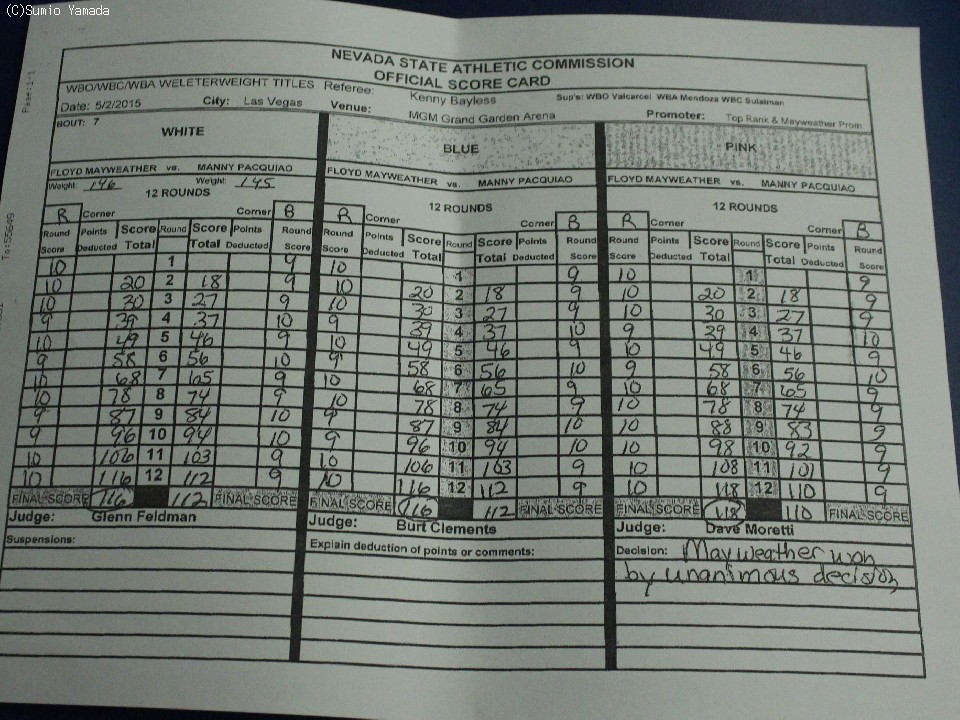 (C)Sumio Yamada
NEVADA STATE ATHLETIC COMMISSION
OFFICIAL SCORE CARD
WBO/WBC/WBA WELETERWEIGHT TITLES Referee: Kenny Bayless Sup's: WBO Valcarcel WBA Mendoza WBC Sulaiman
Date: 5/2/2015 City: Las Vegas Venue: MGM Grand Garden Arena Promoter: Top Rank & Mayweather Prom.
BOUT: 7
WHITE BLUE PINK
FLOYD MAYWEATHER vs. MANNY PACQUIAO FLOYD MAYWEATHER vs. MANNY PACQUIAO FLOYD MAYWEATHER vs. MANNY PACQUIAO
Weight: 146 Weight: 145
12 ROUNDS 12 ROUNDS 12 ROUNDS
R Corner Corner B R Corner Corner B R Corner Corner B
Round Score Points Deducted Score Total Round Score Total Points Deducted Round Score Round Score Points Deducted Score Total Round Score Total Points Deducted Round Score Round Score Points Deducted Score Total Round Score Total Points Deducted Round Score
10 1 9 10 1 9 10 1 9
10 20 2 18 9 10 20 2 18 9 10 20 2 18 9
10 30 3 27 9 10 30 3 27 9 10 30 3 27 9
9 39 4 37 10 9 39 4 37 10 9 39 4 37 10
10 49 5 46 9 10 49 5 46 9 10 49 5 46 9
9 58 6 56 10 9 58 6 56 10 9 58 6 56 10
10 68 7 65 9 10 68 7 65 9 10 68 7 65 9
10 78 8 74 9 10 78 8 74 9 10 78 8 74 9
9 87 9 84 10 9 87 9 84 10 10 88 9 83 9
9 96 10 94 10 9 96 10 94 10 10 98 10 92 9
10 106 11 103 9 10 106 11 103 9 10 108 11 101 9
10 116 12 112 9 10 116 12 112 9 10 118 12 110 9
FINAL SCORE 116 112 FINAL SCORE FINAL SCORE 116 112 FINAL SCORE FINAL SCORE 118 110 FINAL SCORE
Judge: Glenn Feldman Judge: Burt Clements Judge: Dave Moretti
Suspensions: Explain deduction of points or comments: Decision: Mayweather won
by unanimous decision
Page:1/1
To:55649